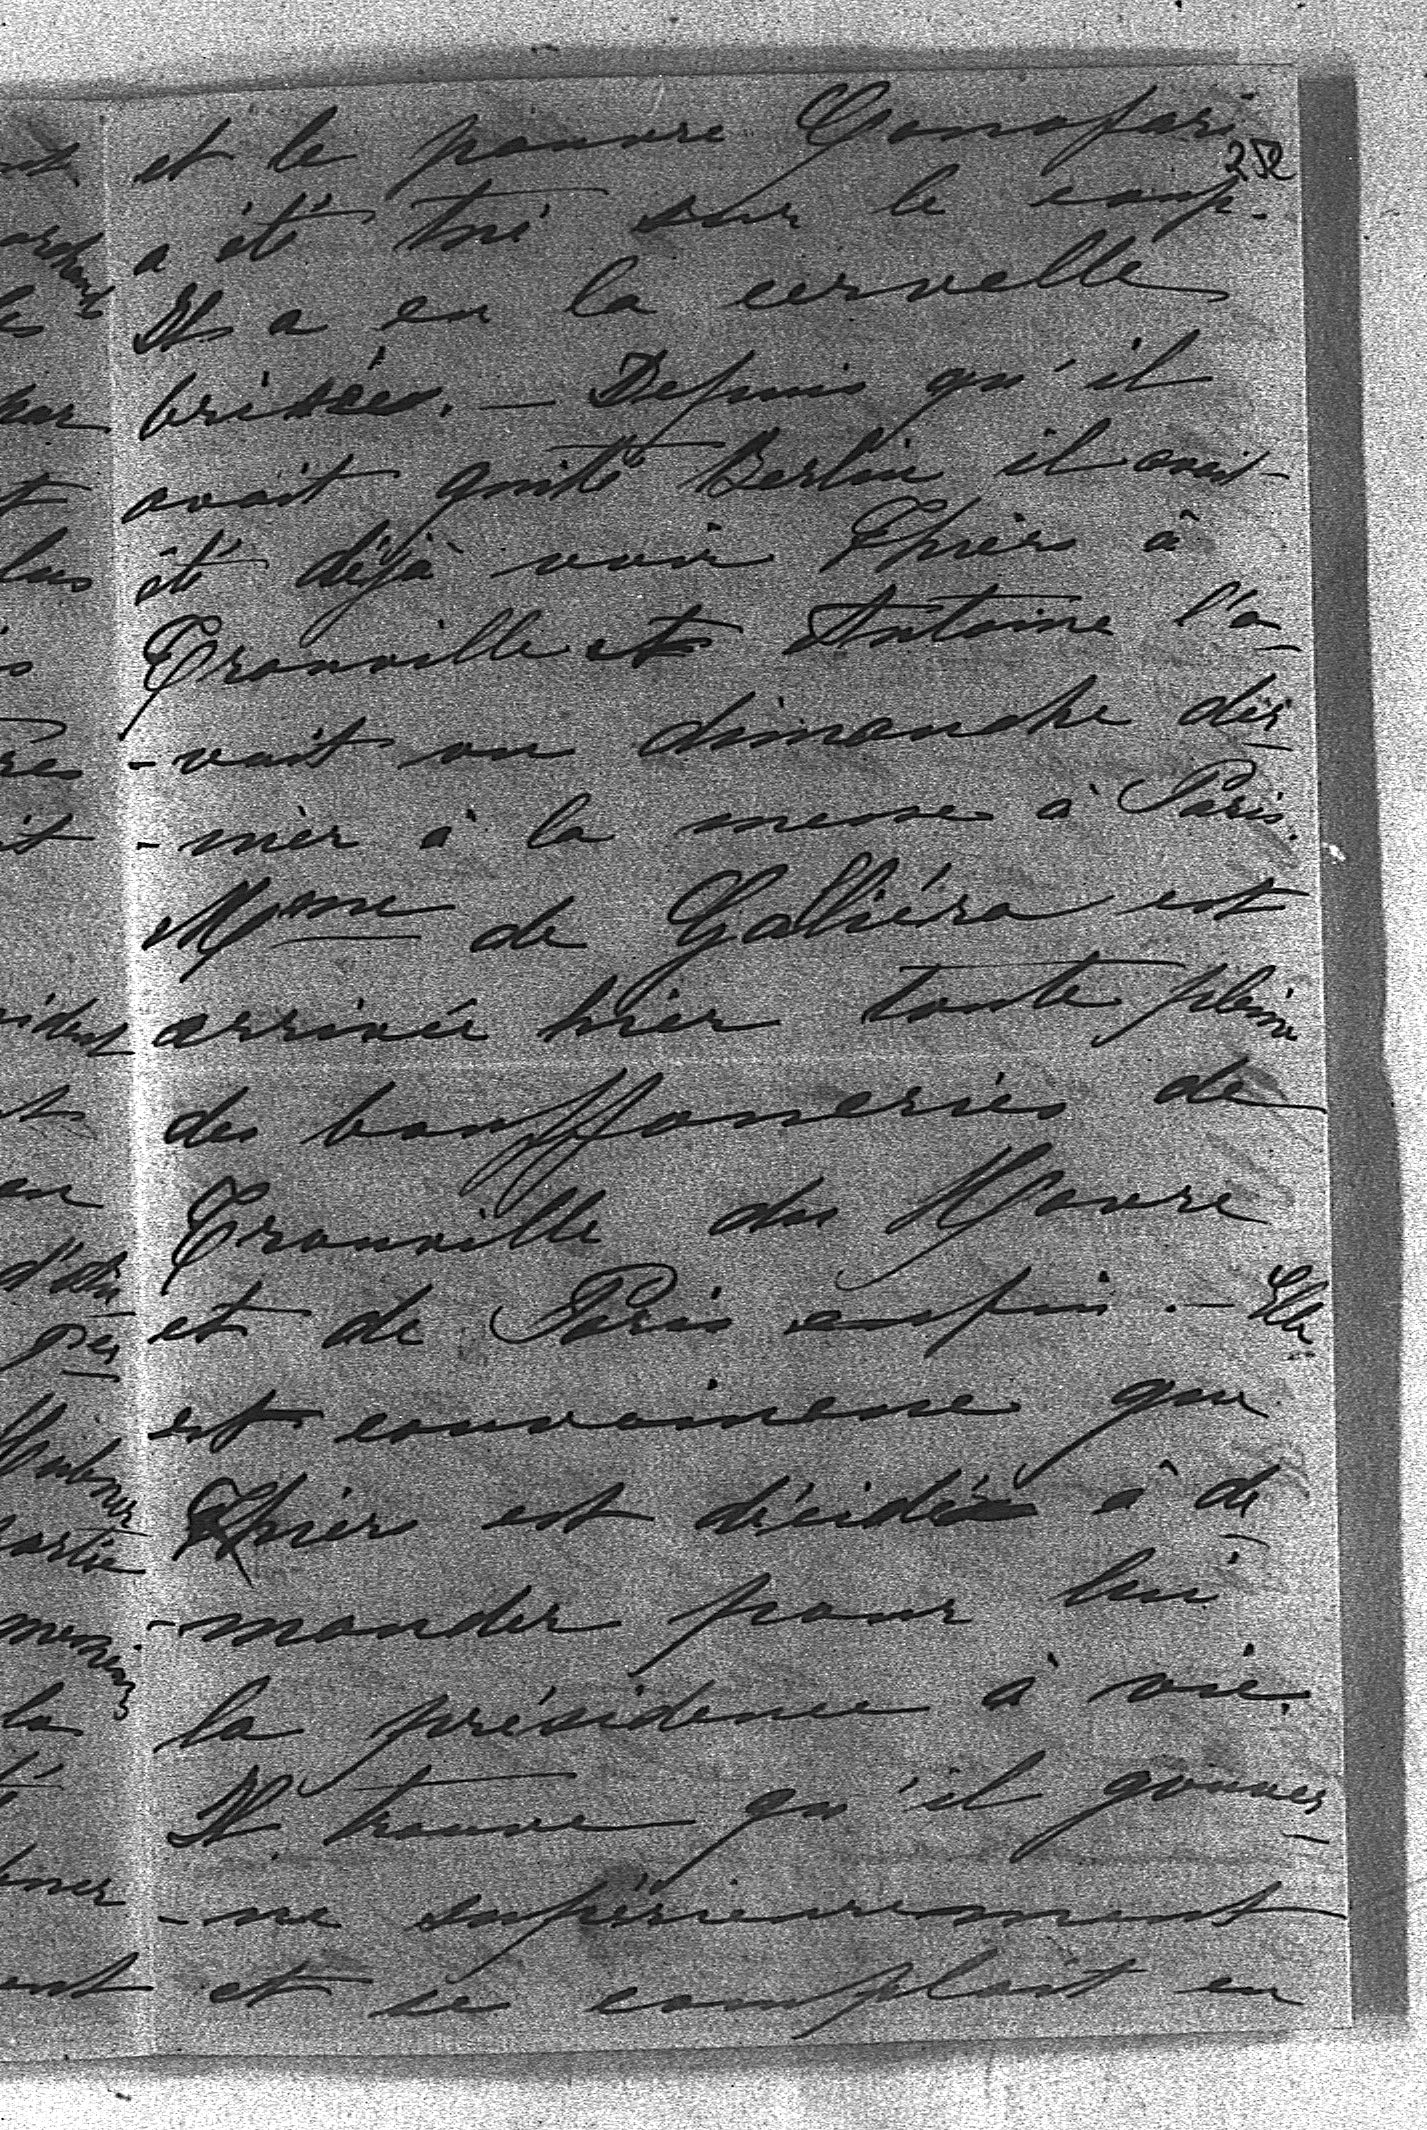 252
et le pauvre Gonofari
a été tué sur le coup.
Il a eu la cervelle
brisée. — Depuis qu'il
avait quité Berlin il avait
été déjà voir Thiers à
Trouville et Antoine l'a-
-vait vu dimanche der-
-nier à la messe à Paris.
Mme de Galliéra est
arrivée hier toute pleine
des bouffoneries de
Trouville du Havre
et de Paris enfin. — Elle
est convaincue que
Thiers est décidé à de-
-mander pour lui
la présidence à vie.
Il trouve qu'il gouver-
-ne supérieurement
et se complait en